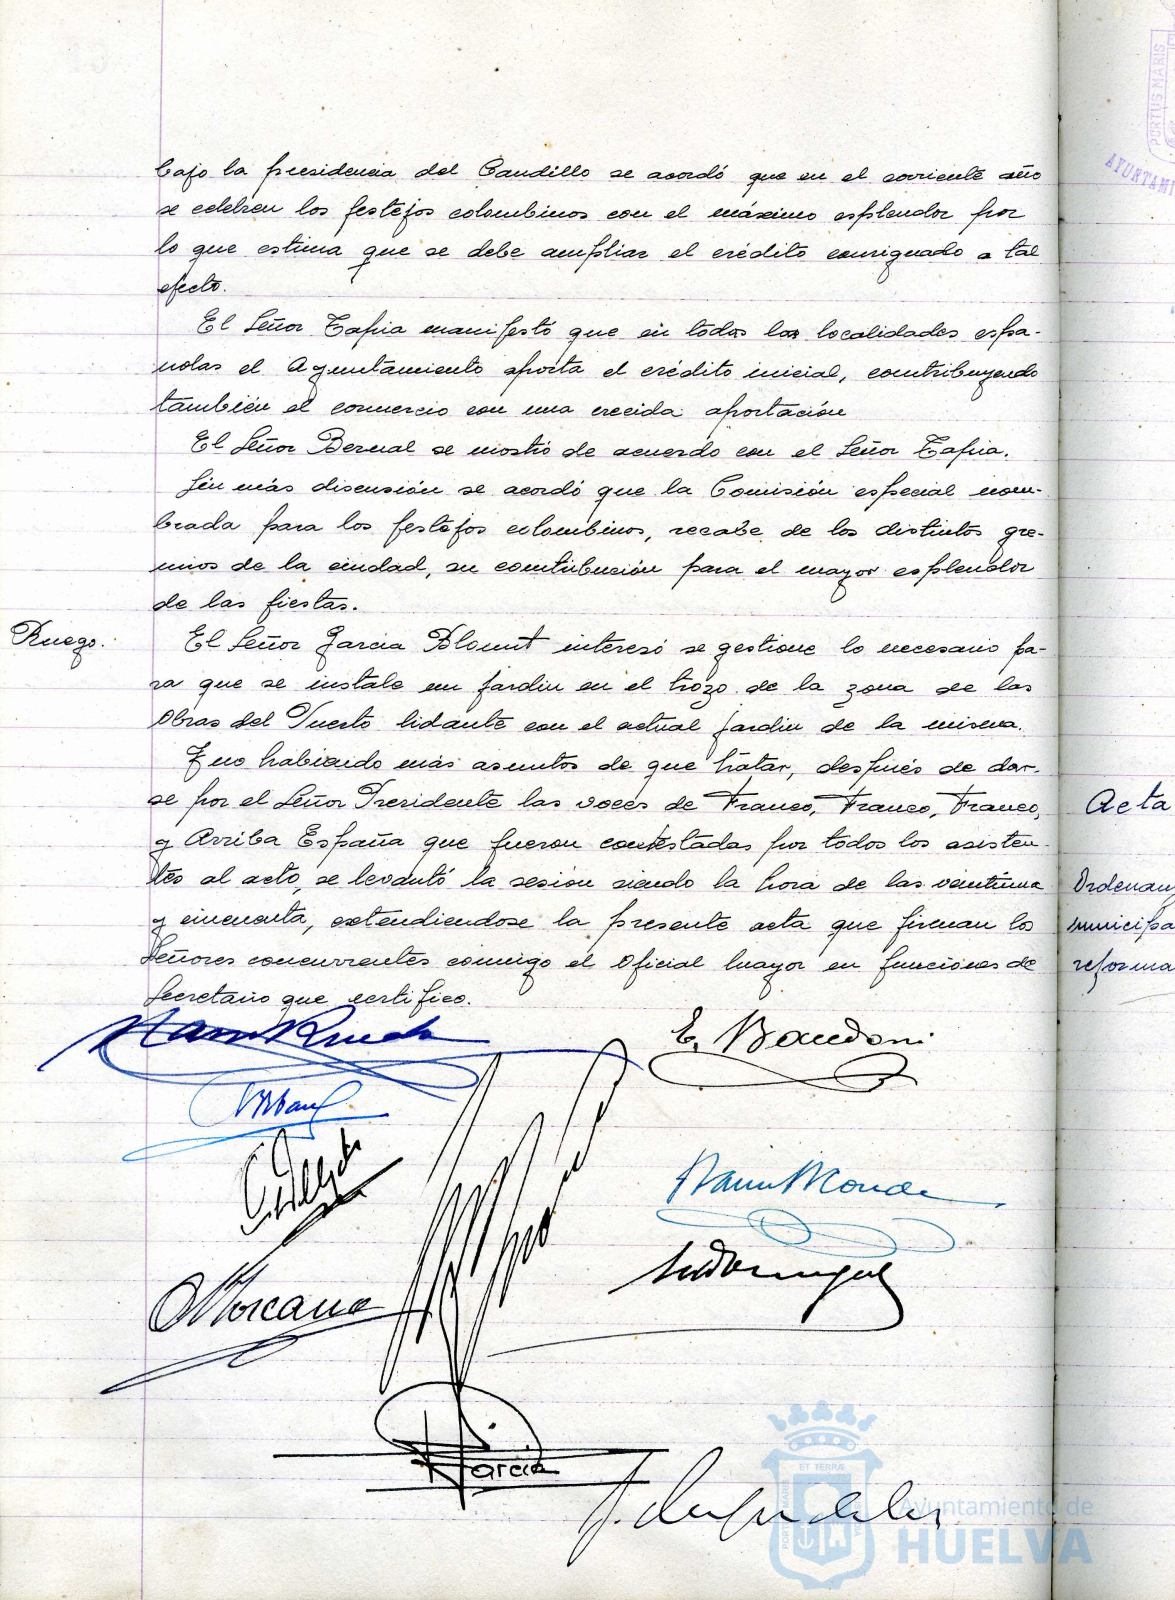 bajo la presidencia del Caudillo se acordó que en el corriente año
se celebren los festejos colombinos con el máximo esplendor por
lo que estima que se debe ampliar el crédito consignado a tal
efecto.
El Señor Tapia manifestó que en todas las localidades espa-
ñolas el Ayuntamiento aporta el crédito inicial, contribuyendo
también el comercio con una crecida aportación
El Señor Bernal se mostró de acuerdo con el Señor Tapia.
Sin más discusión se acordó que la Comisión especial nom-
brada para los festejos colombinos, recabe de los distintos gre-
mios de la ciudad, su contribución para el mayor esplendor
de las fiestas.
Ruego.
El Señor Garcia Blount interesó se gestione lo necesario pa-
ra que se instale un jardin en el trozo de la zona de las
Obras del Puerto lidante con el actual jardin de la misma.
Y no habiendo más asuntos de que tratar, después de dar-
se por el Señor Presidente las voces de Franco, Franco, Franco,
y Arriba España que fueron contestadas por todos los asisten-
tes al acto, se levantó la sesión siendo la hora de las veintiuna
y cincuenta, extendiendose la presente acta que firman los
Señores concurrentes conmigo el Oficial Mayor en funciones de
Secretario que certifico.
E. Bandoni
Garcia
Acta
Ordenan
municipa
reforma
PORTUS MARIS
AYUNTAMI
PORTUS MARIS
ET TERRÆ
Ayuntamiento de
HUELVA